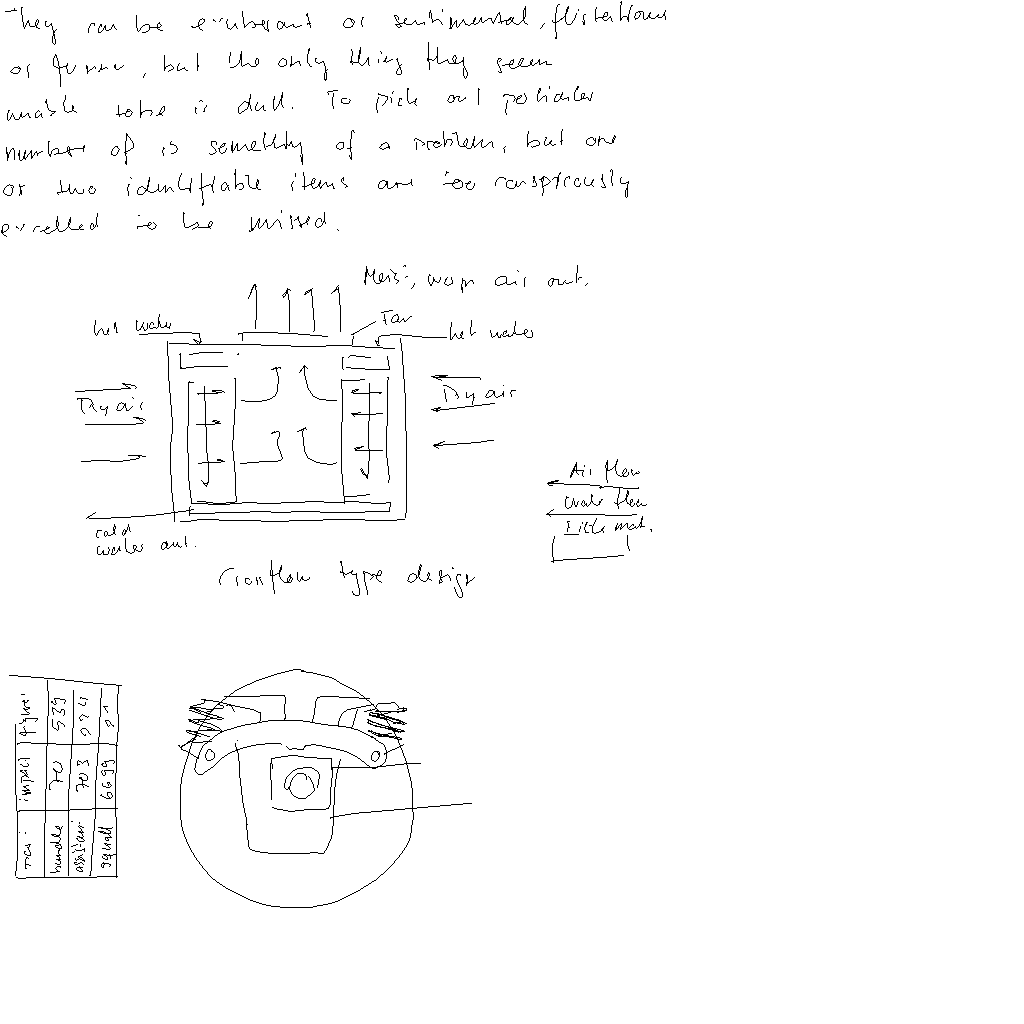 They can be exuberant or sentimental, flirtatious
or funny, but the only thing they seem
unable to be is dull. To pick out particular
number of is something of a problem, but one
or two identifiable items are too conspicously
excelled to be missed.
Moist, warm air out.
Fan
hot water
hot water
Dry air
Dry air
Air flow
Water flow
cold
water out.
Crossflow type design
impact figure
bundle 70 539
assistant 703
squall 6699 21